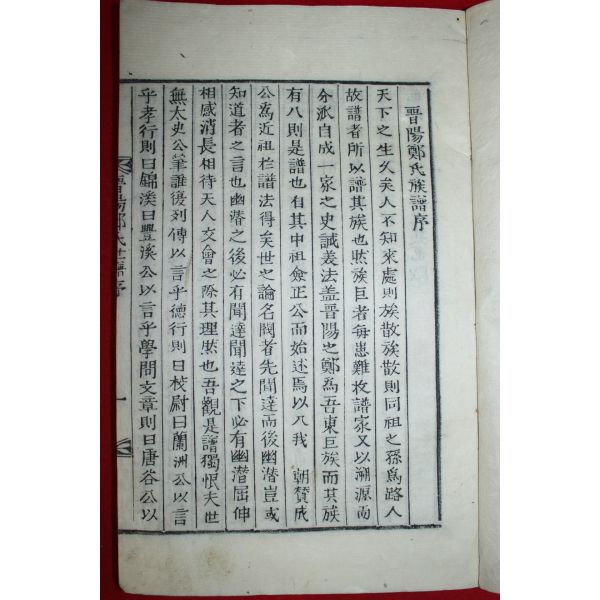 晋陽鄭氏族譜序
天下之生久矣人不知來處則族散族散則同祖之孫爲路人
故譜者所以譜其族也然族巨者每患難枚譜家又以溯源而
分派自成一家之史誠義法盖晋陽之鄭爲吾東巨族而其族
有八則是譜也自其中祖僉正公而始述焉以入我 朝贊成
公爲近祖於譜法得矣世之論名閥者先聞達而後幽潜豈或
知道者之言也幽潜之後必有聞達聞達之下必有幽潜屈伸
相感消長相待天人交會之除其理然也吾觀是譜獨恨夫世
無太史公筆誰復列傳以言乎德行則曰校尉曰蘭洲公以言
乎孝行則曰錦溪曰豐溪公以言乎學問文章則曰唐谷公以
晋陽鄭氏世譜序
一